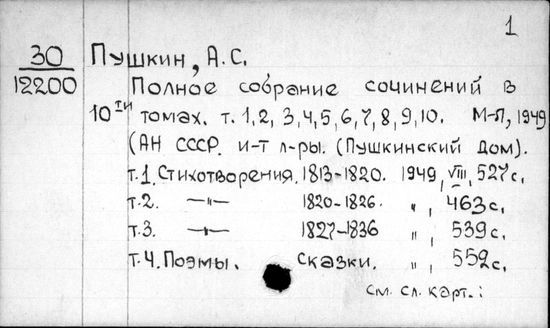 1
30 Пушкин, А.С.
12200 Полное собрание сочинений в
10ти томах. т. 1,2, 3,4,5,6,7,8,9,10. М-Л, 1949
(АН СССР. и-т л-ры. (Пушкинский Дом).
т.1. Стихотворения. 1813-1820. 1949, VIII, 527с.
т.2. —"— 1820-1826. ", 463с.
т.3. —"— 1827-1836 ", 539с.
т.4. Поэмы. Сказки. ", 552с.
см. сл. карт.: